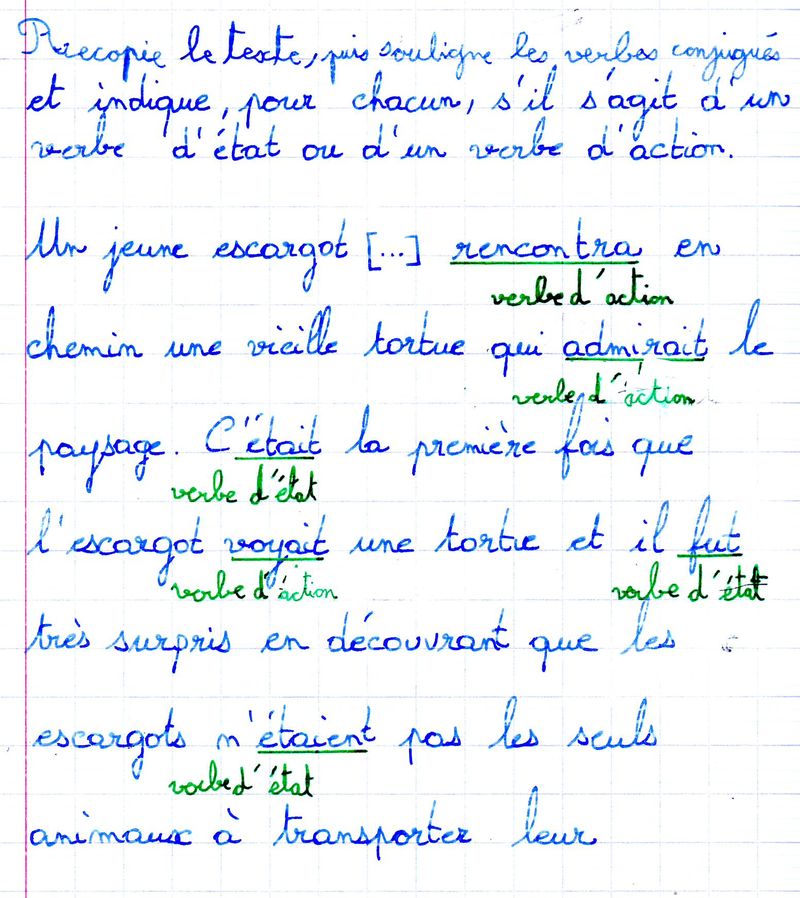 Recopie le texte, puis souligne les verbes conjugués
et indique, pour chacun, s'il s'agit d'un
verbe d'état ou d'un verbe d'action.
Un jeune escargot [...] rencontra en
verbe d'action
chemin une vieille tortue qui admirait le
verbe d'action
paysage. C'était la première fois que
verbe d'état
l'escargot voyait une tortue et il fut
verbe d'action verbe d'état
très surpris en découvrant que les
escargots n'étaient pas les seuls
verbe d'état
animaux à transporter leur